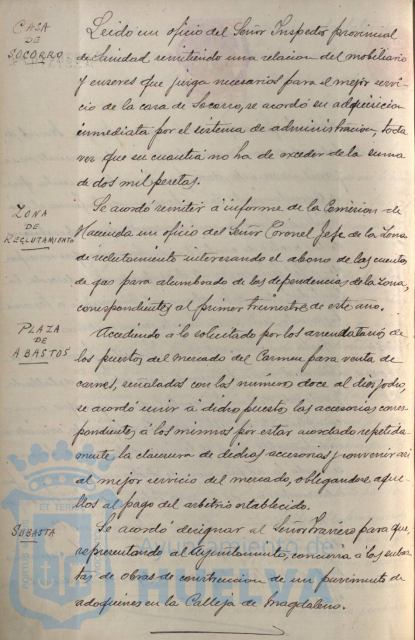 CASA
DE
SOCORRO
Leido un oficio del Señor Inspector provincial
de Sanidad remitiendo una relacion del mobiliario
y enseres que juzga necesarios para el mejor servi-
cio de la casa de Socorro, se acordó su adquisicion
inmediata por el sistema de administracion, toda
vez que su cuantia no ha de exceder de la suma
de dos mil pesetas.
ZONA
DE
RECLUTAMIENTO
Se acordó remitir á informe de la Comision de
Hacienda un oficio del Señor Coronel Jefe de la Zona
de reclutamiento interesando el abono de las cuentas
de gas para alumbrado de las dependencias de la Zona,
correspondientes al primer trimestre de este año.
PLAZA
DE
ABASTOS
Accediendo á lo solicitado por los arrendatarios de
los puestos del mercado del Carmen para venta de
carnes, señalados con los números doce al dies y ocho,
se acordó unir á dichos puestos las accesorias corres-
pondientes á los mismos por estar acordado repetida-
mente la clausura de dichas accesorias y convenir asi
al mejor servicio del mercado, obligandose aque-
llos al pago del arbitrio establecido.
SUBASTA
Se acordó designar al Señor para que,
representando al Ayuntamiento, concurra á las subas-
tas de obras de construccion de un pavimento de
adoquines en la Calleja de Magdalena.
Ayuntamiento de
HUELVA